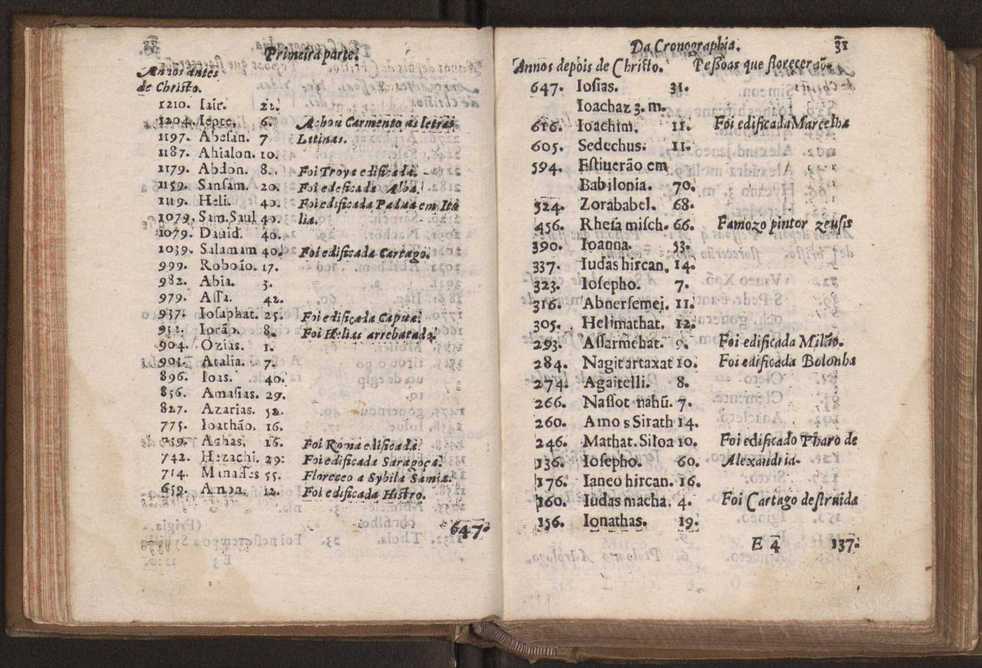 Primeira parte.
Annos antes
de Christo.
1210. Iair. 22.
1204. Iepte. 6. Achou Carmento as letras
1197. Abesan. 7 Latinas.
1187. Ahialon. 10.
1179. Abdon. 8. Foi Troya edificada.
1159. Sansam. 20. Foi edeficada Alba.
1119. Heli. 40. Foi edificada Padua em Itá
1079. Sam. Saul 40. lia.
1079. Dauid. 40.
1039. Salamam 40. Foi edificada Cartago.
999. Roboão. 17.
982. Abia. 3.
979. Assa. 42.
937. Iosaphat. 25. Foi edificada Capua.
932. Iorão. 8. Foi Helias arrebatado.
904. Ozias. 1.
903. Atalia. 7.
896. Ioas. 40.
856. Amasias. 29.
827. Azarias. 52.
775. Ioathão. 16.
759. Achas. 16. Foi Roma edificada.
742. Hezachi. 29: Foi edificada Saragoça.
714. Manasses 55. Floreceo a Sybila Samia.
659. Amon. 12. Foi edificada Histro.
647.
Da Cronographia. 31
Annos depois de Christo. Pessoas que florecerão.
647. Iosias. 31.
Ioachaz 3. m.
616. Ioachim. 11. Foi edificada Marcelha
605. Sedechus. 11.
594. Estiuerão em
Babilonia. 70.
524. Zorababel. 68.
456. Rhesa misch. 66. Famozo pintor zeusis
390. Ioanna. 53.
337. Iudas hircan. 14.
323. Iosepho. 7.
316. Abnersemei. 11.
305. Helimathat. 12.
293. Assarmehat. 9. Foi edificada Milão.
284. Nagit artaxat 10. Foi edificada Bolonha
274. Agaitelli. 8.
266. Nassot nahũ. 7.
260. Amos Sirath 14.
246. Mathat. Siloa 10. Foi edificado Pharo de
136. Iosepho. 60. Alexandria.
176. Ianeo hircan. 16.
160. Iudas macha. 4. Foi Cartago destruida
156. Ionathas. 19.
E 4 137.